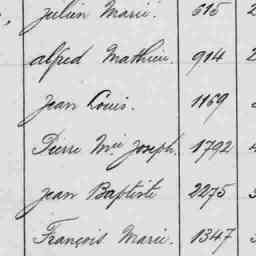 Julien Marie. 615
Alfred Mathieu. 904
Jean Louis. 1169
Pierre Mie Joseph. 1792
Jean Baptiste 2275
François Marie. 1347